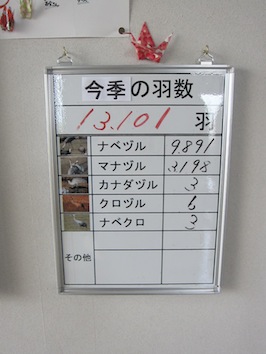 今季の羽数
13,101 羽
ナベヅル 9,891
マナヅル 3,198
カナダヅル 3
クロヅル 6
ナベクロ 3
その他